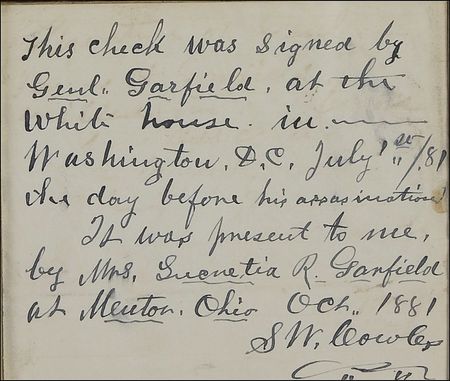 This check was signed by
Genl. Garfield, at the
White house. in.
Washington, D.C, July 1st/81
the day before his assasination
It was present to me,
by Mrs. Lucretia R. Garfield
at Mentor, Ohio Oct., 1881
S W. Cowles